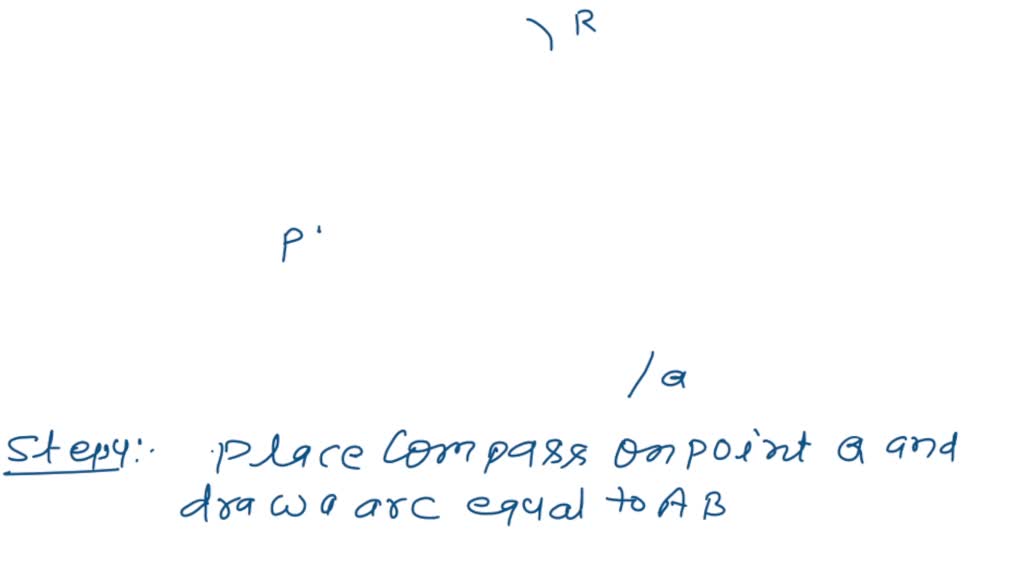 R
P
Q
Step4:- Place Compass on point Q and
draw a arc equal to AB